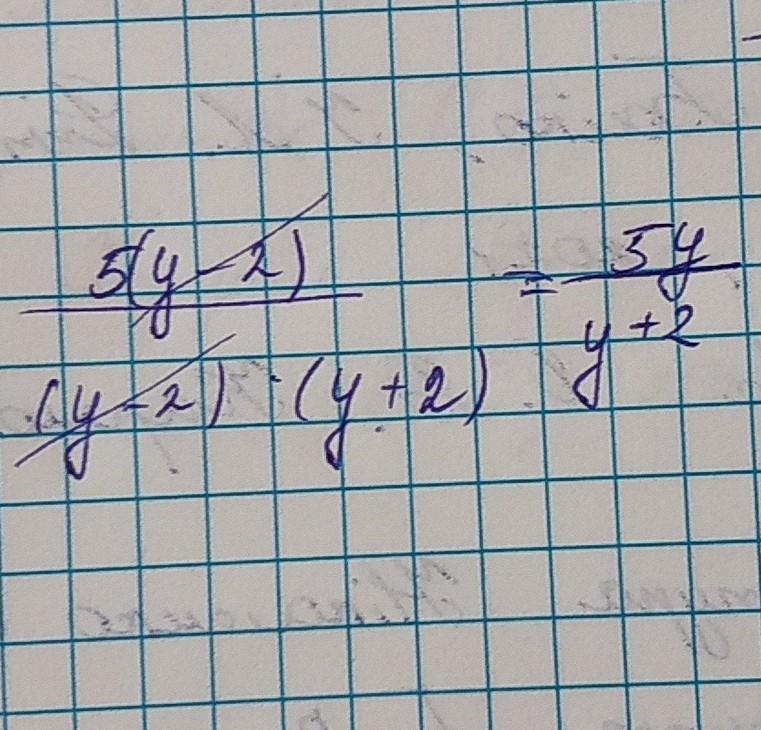 5(y-2) / (y-2) · (y+2) = 5y / y+2